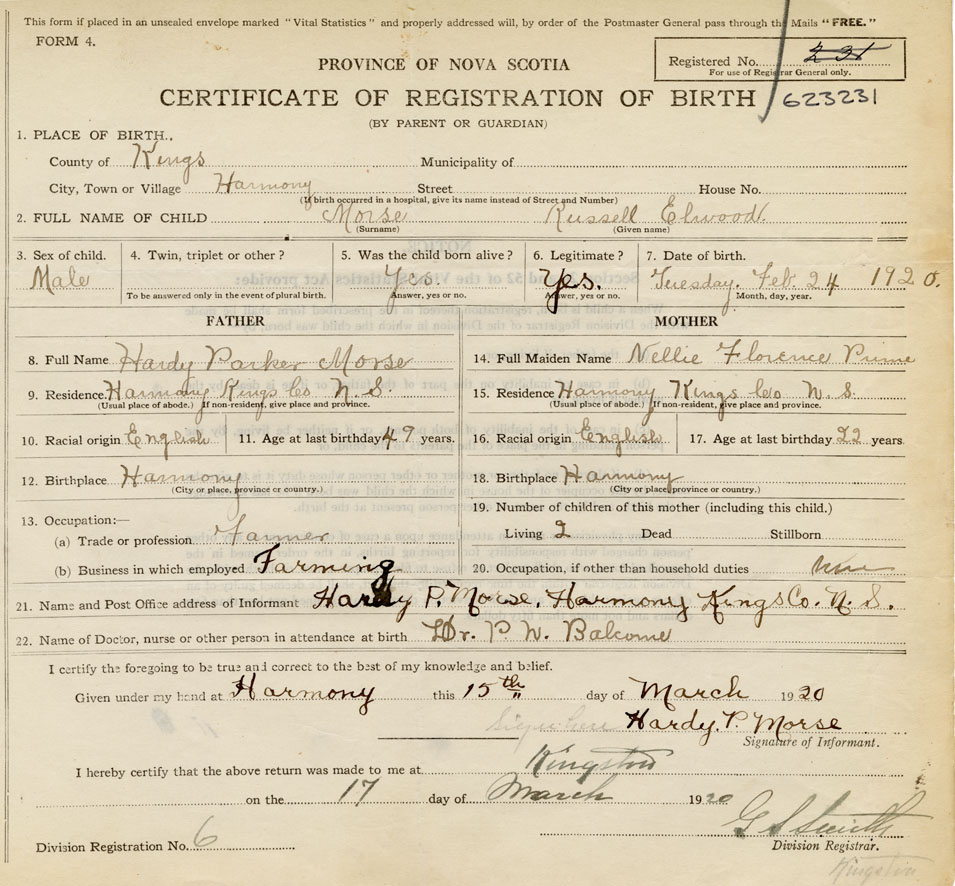 This form if placed in an unsealed envelope marked "Vital Statistics" and properly addressed will, by order of the Postmaster General pass through the Mails "FREE."
FORM 4.
Registered No. 231
For use of Registrar General only.
PROVINCE OF NOVA SCOTIA
CERTIFICATE OF REGISTRATION OF BIRTH 623231
(BY PARENT OR GUARDIAN)
1. PLACE OF BIRTH..
County of Kings Municipality of
City, Town or Village Harmony Street House No.
(If birth occurred in a hospital, give its name instead of Street and Number)
2. FULL NAME OF CHILD Morse Russell Elwood.
(Surname) (Given name)
3. Sex of child. 4. Twin, triplet or other? 5. Was the child born alive? 6. Legitimate? 7. Date of birth.
Male Yes. Yes. Tuesday. Feb. 24 1920.
To be answered only in the event of plural birth. Answer, yes or no. Answer, yes or no. Month, day, year.
FATHER MOTHER
8. Full Name Hardy Parker Morse 14. Full Maiden Name Nellie Florence Prime
9. Residence Harmony Kings Co N. S. 15. Residence Harmony Kings Co N. S.
(Usual place of abode.) If non-resident, give place and province. (Usual place of abode.) If non-resident, give place and province.
10. Racial origin English 11. Age at last birthday 49 years. 16. Racial origin English 17. Age at last birthday 22 years
12. Birthplace Harmony 18. Birthplace Harmony
(City or place, province or country.) (City or place, province or country.)
13. Occupation:— 19. Number of children of this mother (including this child.)
(a) Trade or profession Farmer Living 2 Dead Stillborn
(b) Business in which employed Farming 20. Occupation, if other than household duties
21. Name and Post Office address of Informant Hardy P. Morse. Harmony Kings Co. N. S.
22. Name of Doctor, nurse or other person in attendance at birth Dr. P. N. Balcome
I certify the foregoing to be true and correct to the best of my knowledge and belief.
Given under my hand at Harmony this 15th day of March 1920
Sign here Hardy. P. Morse
Signature of Informant.
I hereby certify that the above return was made to me at Kingston
on the 17 day of March 1920
G S Smith
Division Registration No. 6 Division Registrar.
Kingston